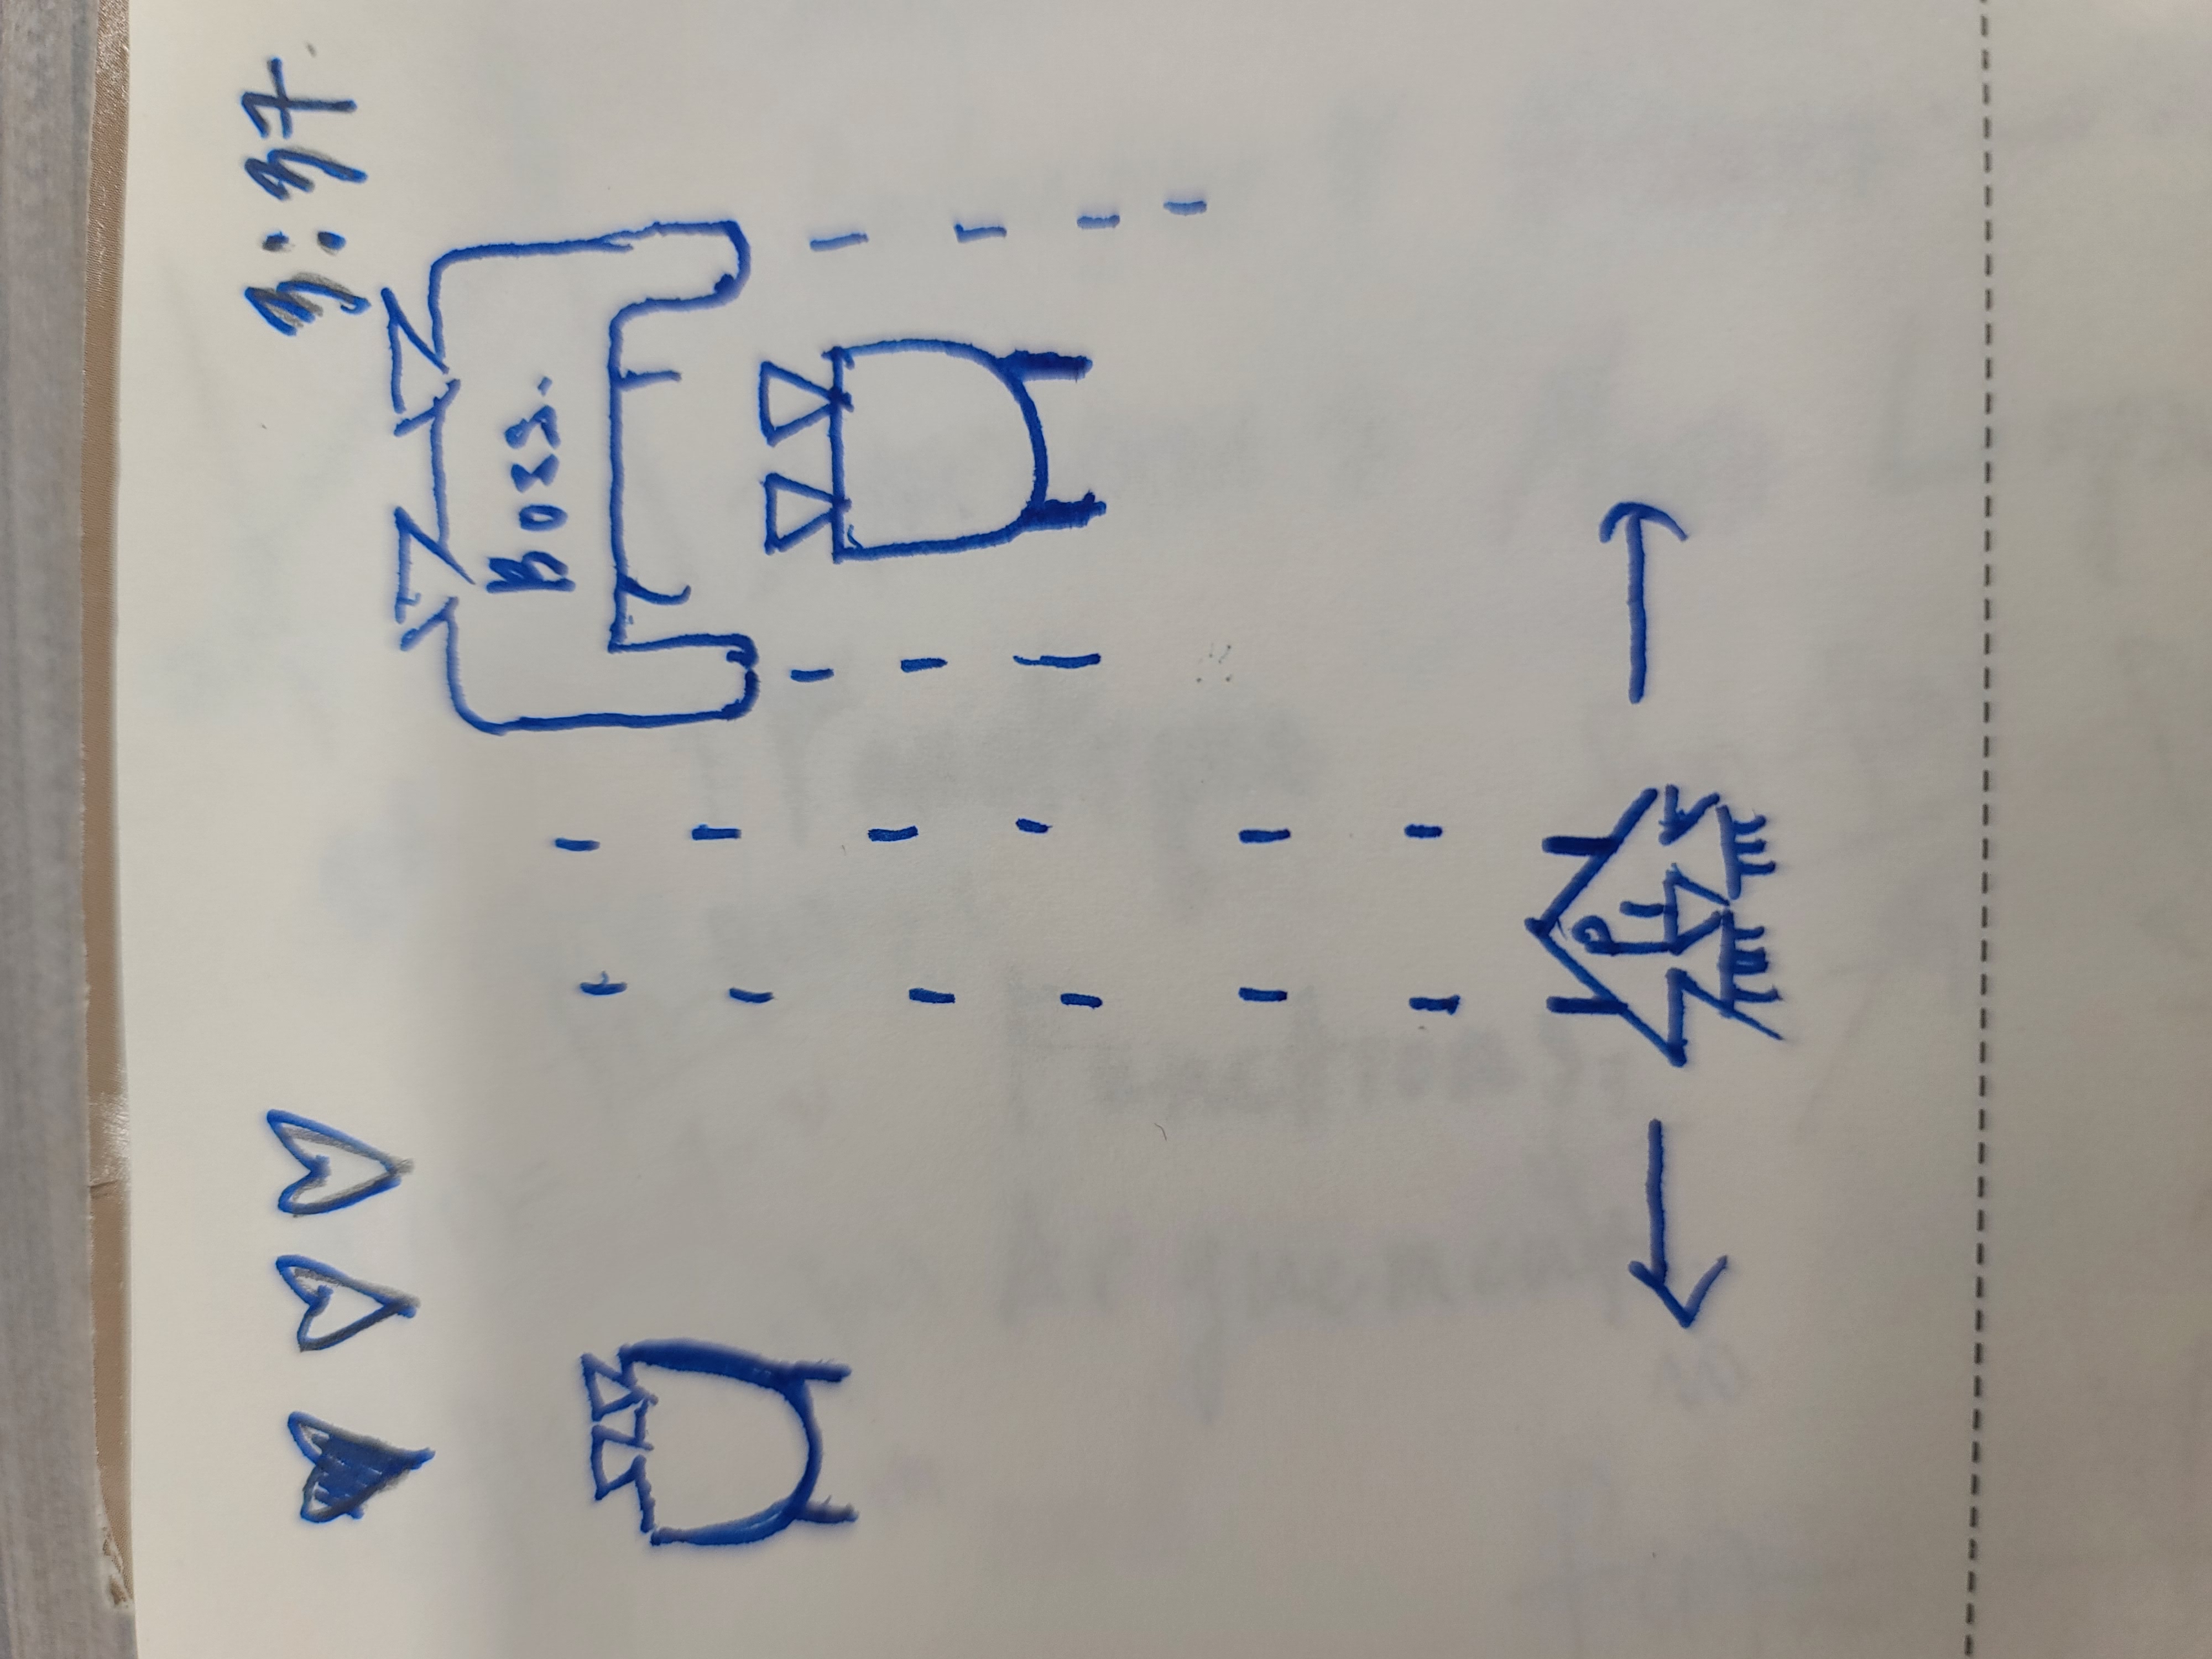 3:37
Boss.
P1